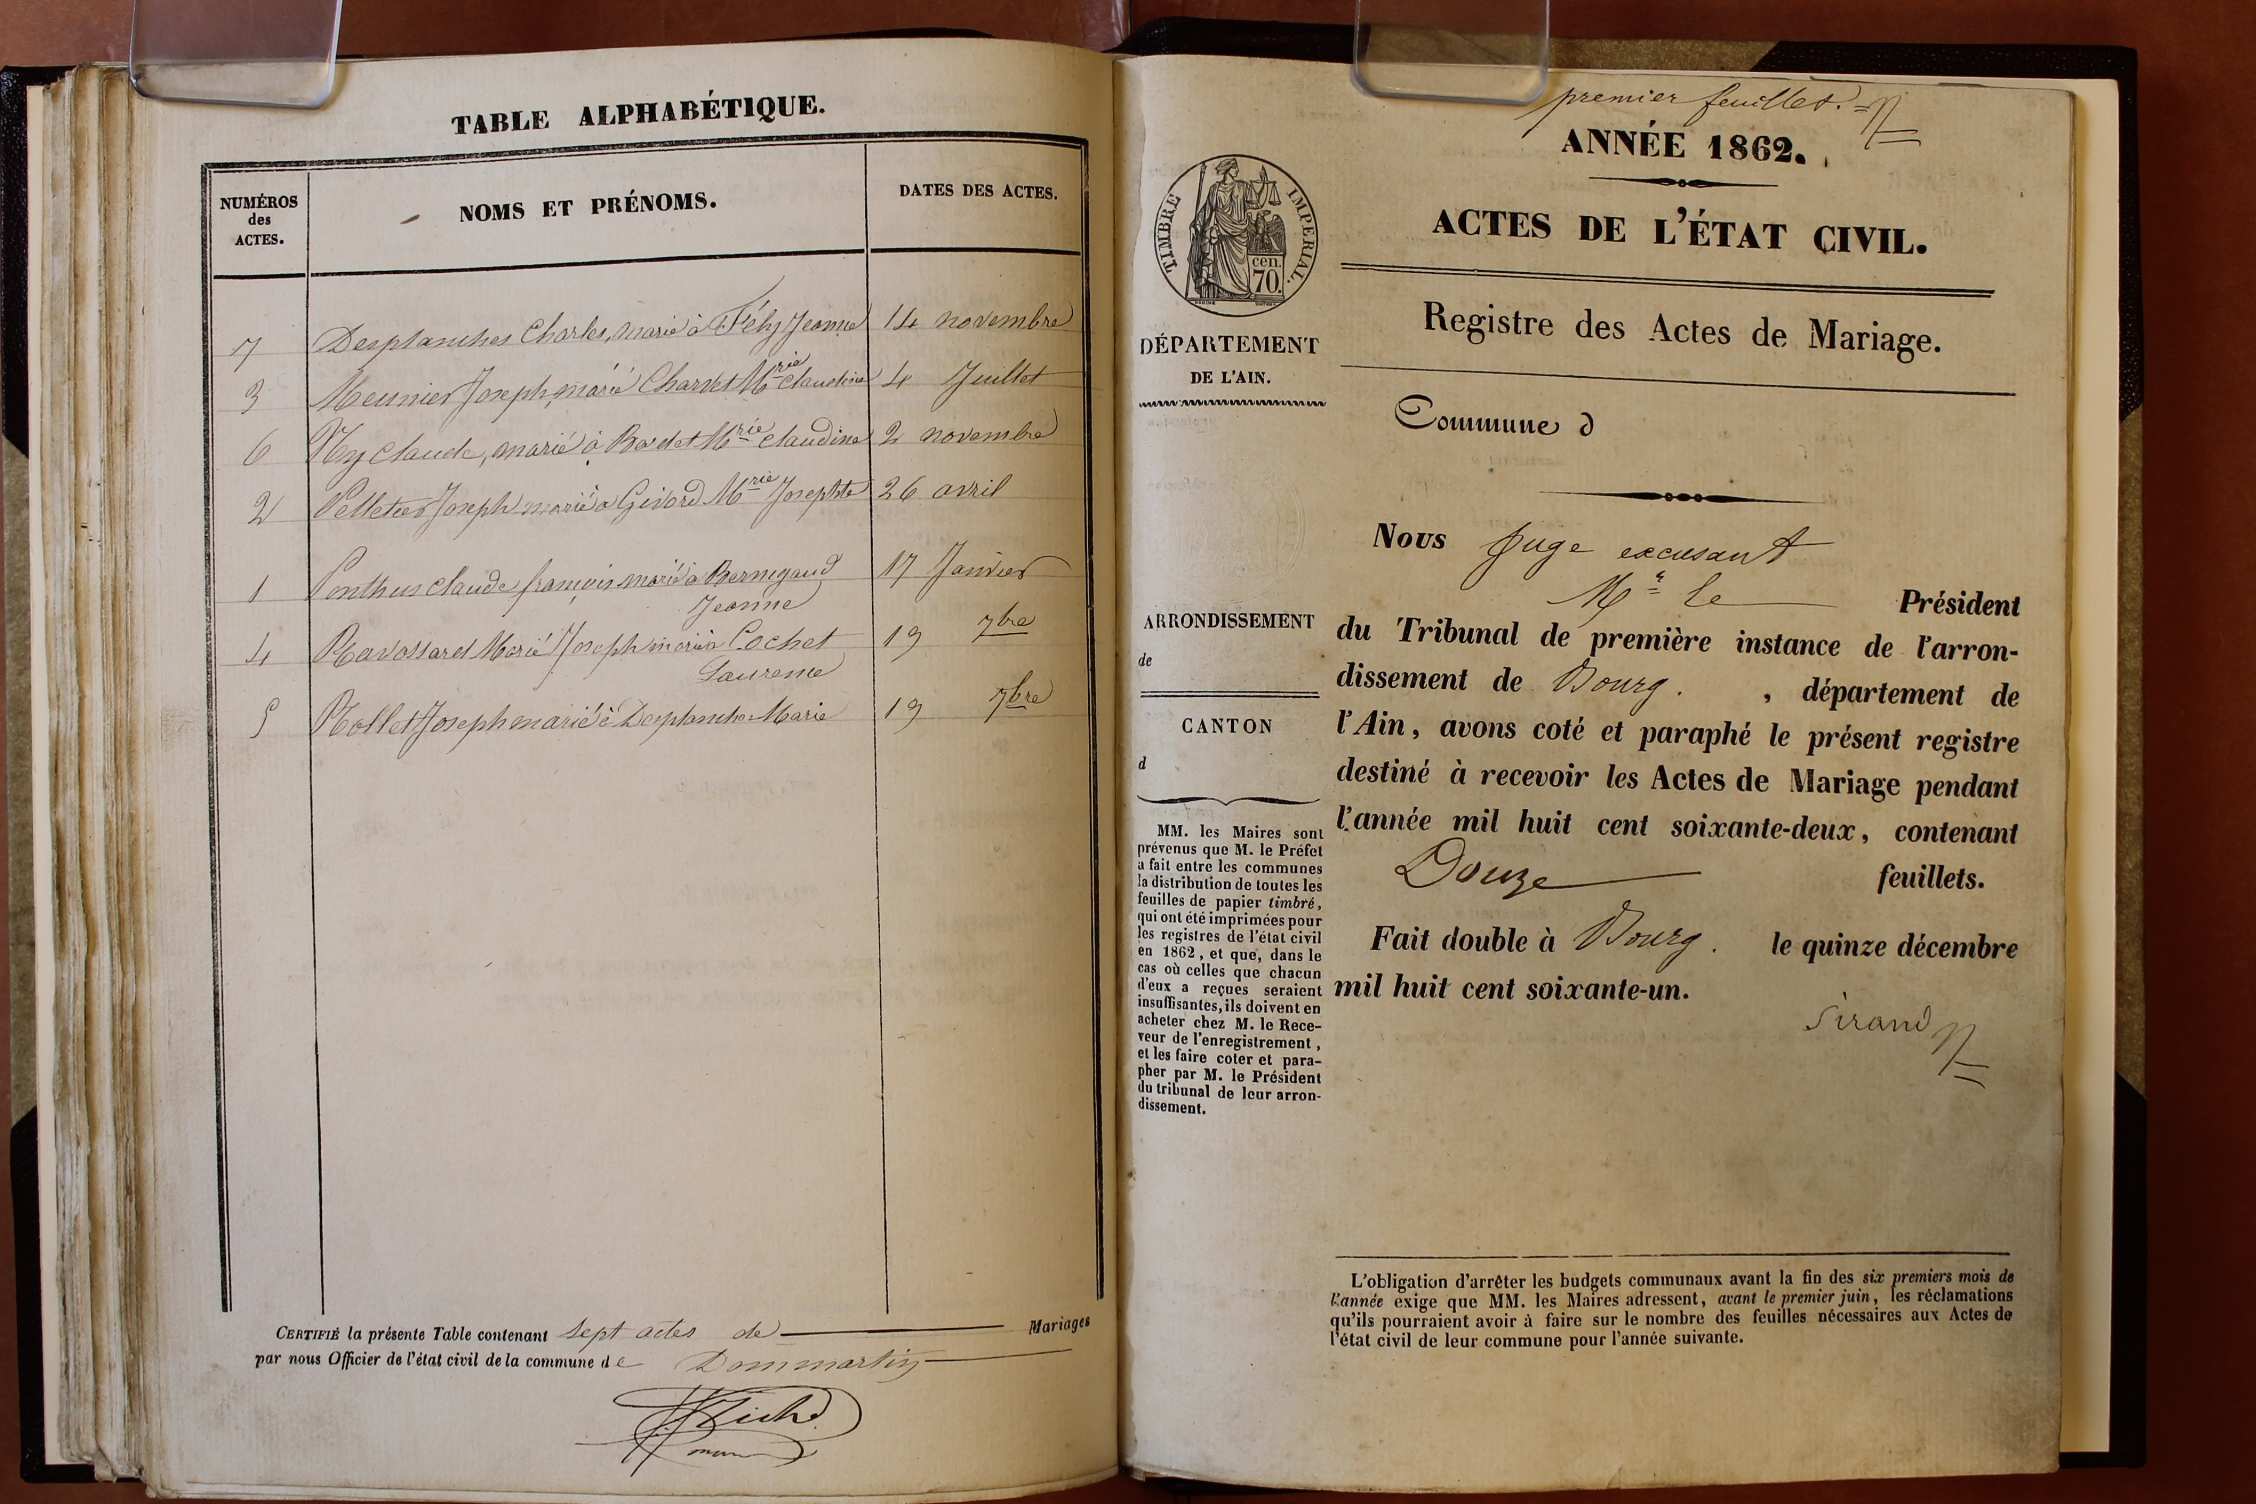 TABLE ALPHABÉTIQUE.
NUMÉROS
des
ACTES.
NOMS ET PRÉNOMS.
DATES DES ACTES.
7 Desplanches Charles, marié à Fély Jeanne 14 novembre
3 Meunier Joseph, marié Charvet Mrie Claudine 4 Juillet
6 Ny Claude, marié à Bordet Mrie Claudine 2 novembre
2 Pelletier Joseph marié à Givord Mrie Josephte 26 avril
1 Ponthus Claude françois marié à Bernigaud 17 Janvier
Jeanne
4 Ravassard Marié Joseph marié à Cochet 19 7bre
Laurence
5 Rollet Joseph marié à Desplanche Marie 19 7bre
CERTIFIÉ la présente Table contenant sept actes de Mariages
par nous Officier de l'état civil de la commune de Dommartin
premier feuillet.
ANNÉE 1862.
ACTES DE L'ÉTAT CIVIL.
TIMBRE IMPERIAL.
cen.
70.
Registre des Actes de Mariage.
DÉPARTEMENT
DE L'AIN.
Commune d
Nous juge excusant
Mr le Président
ARRONDISSEMENT
de
CANTON
d
du Tribunal de première instance de l'arron-
dissement de Bourg. , département de
l'Ain, avons coté et paraphé le présent registre
destiné à recevoir les Actes de Mariage pendant
l'année mil huit cent soixante-deux, contenant
Douze feuillets.
Fait double à Bourg. le quinze décembre
mil huit cent soixante-un.
Sirand
MM. les Maires sont
prévenus que M. le Préfet
a fait entre les communes
la distribution de toutes les
feuilles de papier timbré,
qui ont été imprimées pour
les registres de l'état civil
en 1862, et que, dans le
cas où celles que chacun
d'eux a reçues seraient
insuffisantes, ils doivent en
acheter chez M. le Rece-
veur de l'enregistrement,
et les faire coter et para-
pher par M. le Président
du tribunal de leur arron-
dissement.
L'obligation d'arrêter les budgets communaux avant la fin des six premiers mois de
l'année exige que MM. les Maires adressent, avant le premier juin, les réclamations
qu'ils pourraient avoir à faire sur le nombre des feuilles nécessaires aux Actes de
l'état civil de leur commune pour l'année suivante.